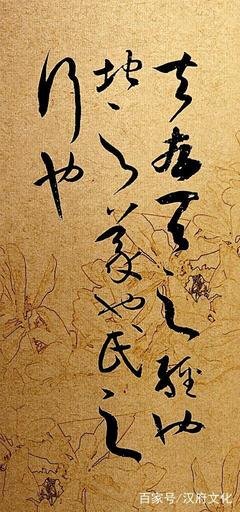 夫孝天之經也
地之義也民之
行也
百家号/汉府文化